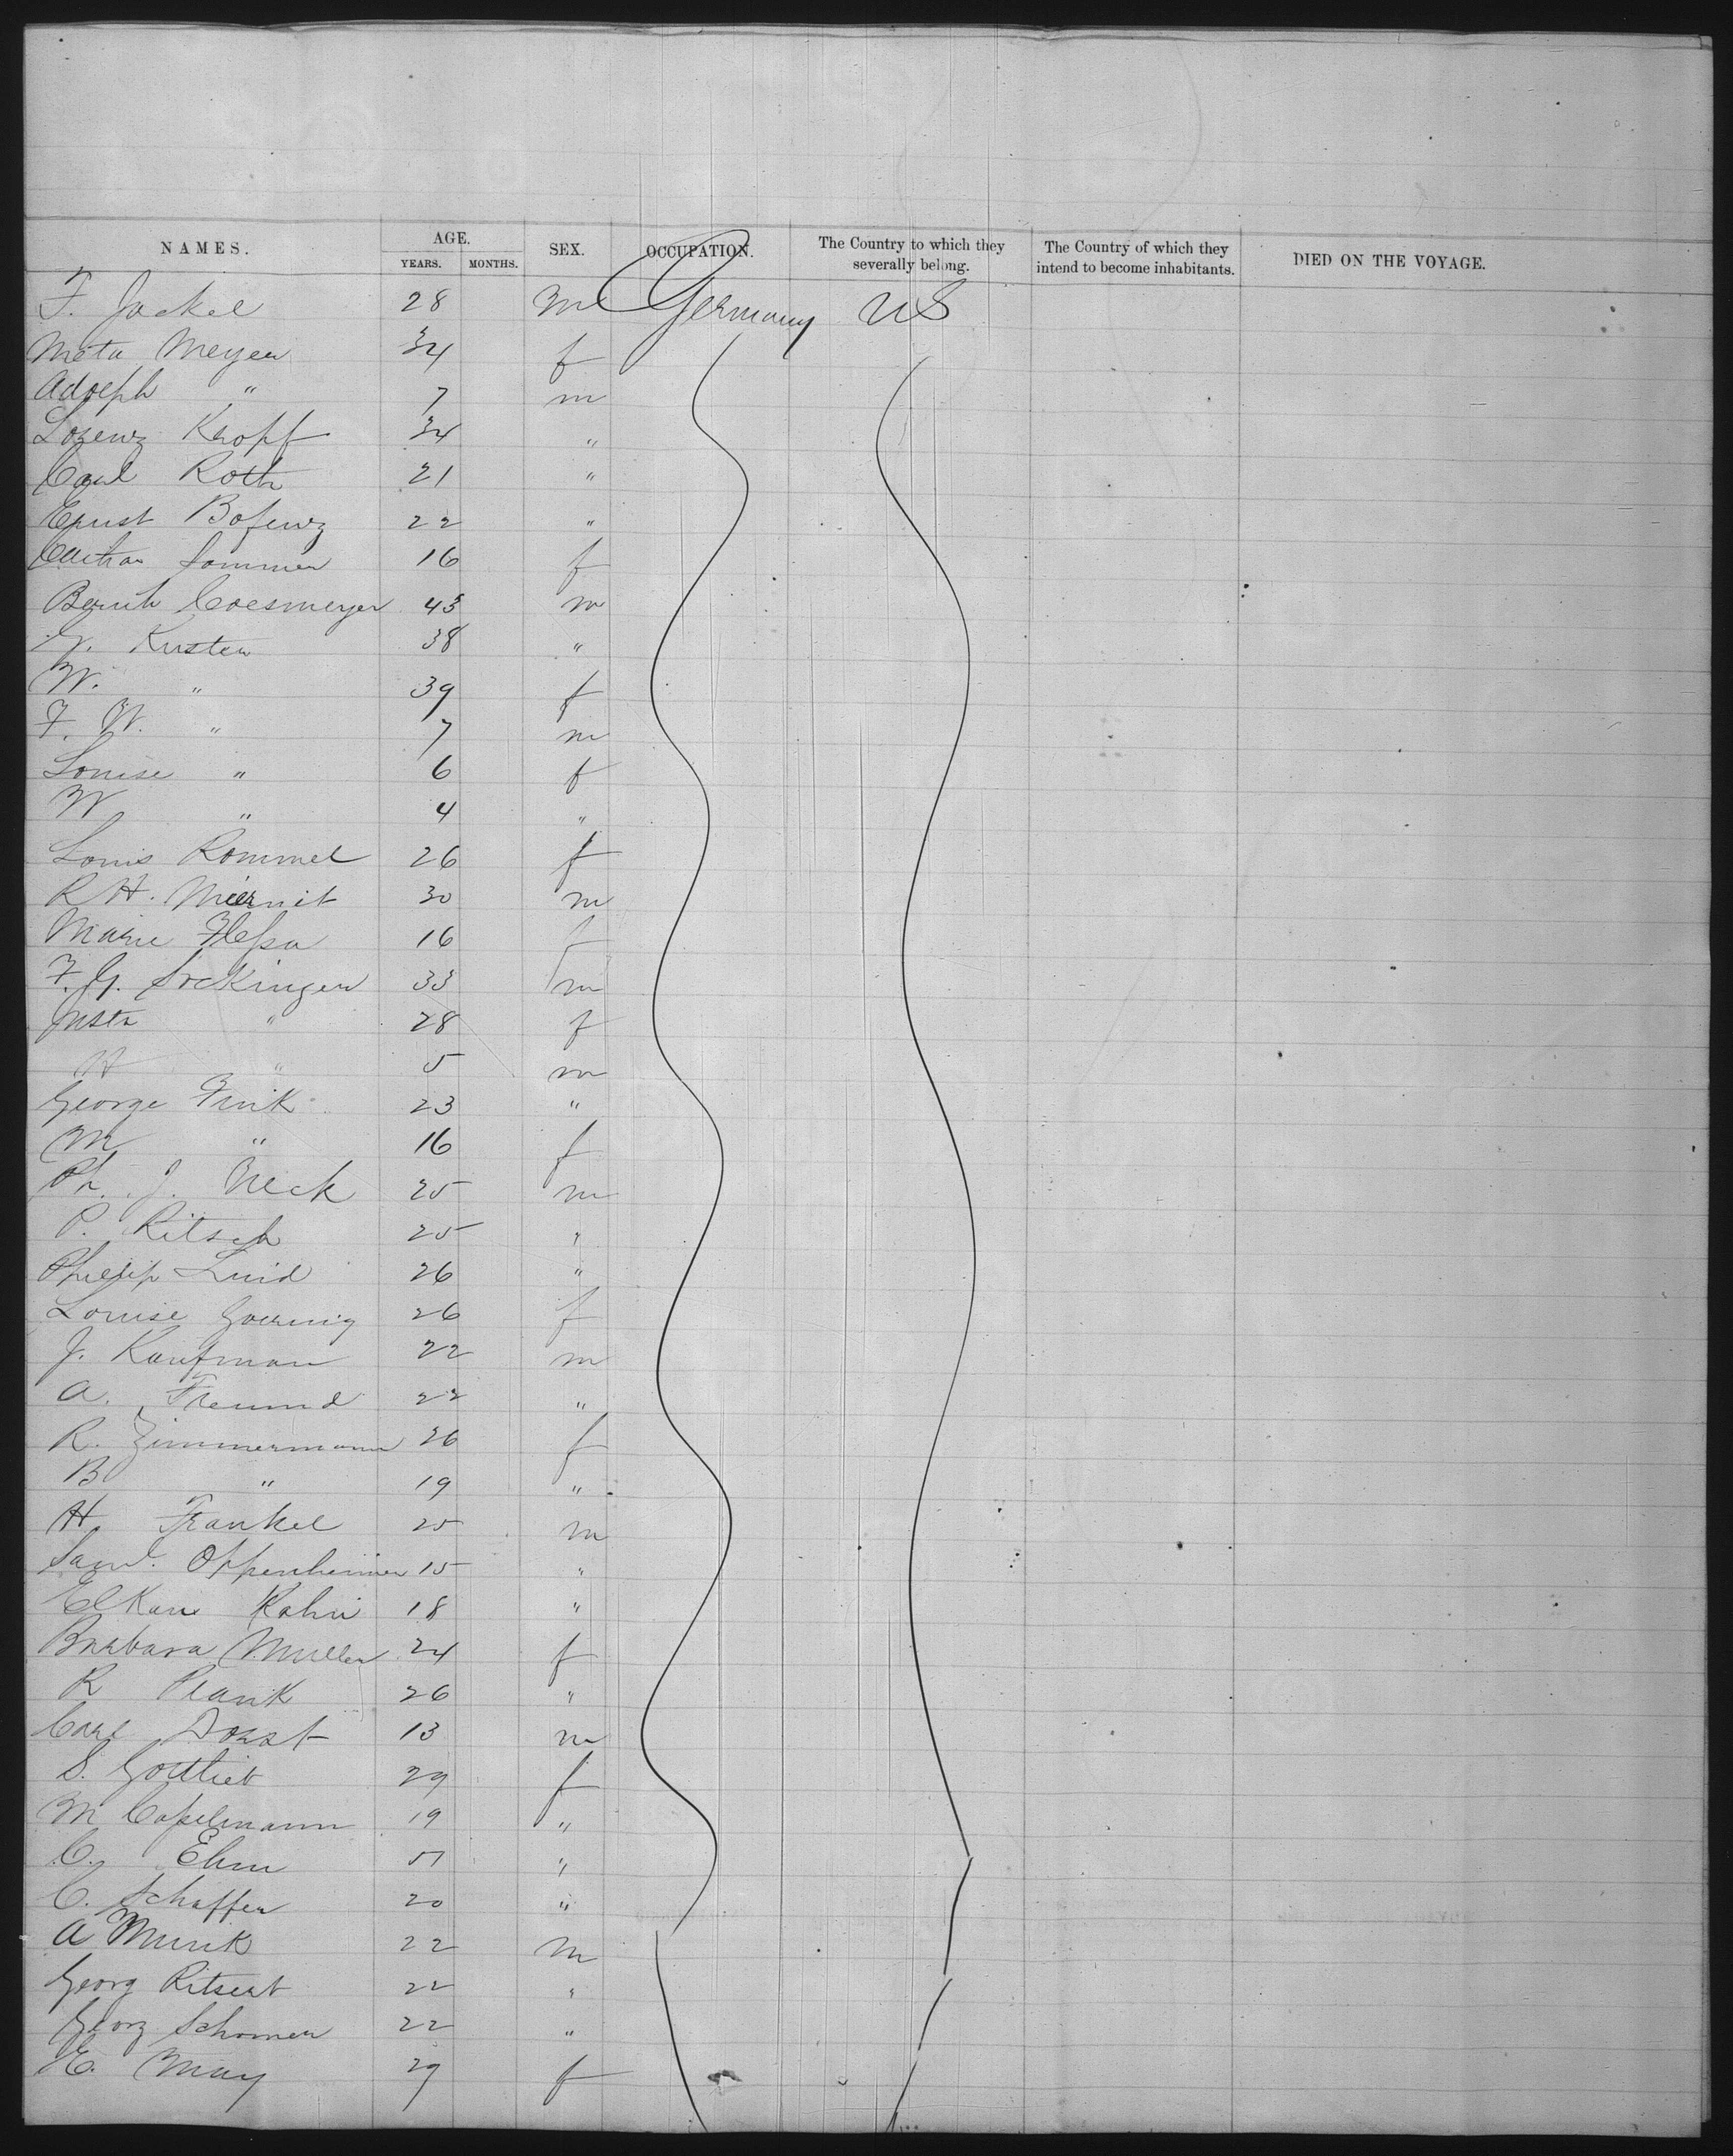 NAMES. AGE. YEARS. MONTHS. SEX. OCCUPATION. The Country to which they severally belong. The Country of which they intend to become inhabitants. DIED ON THE VOYAGE.
F. Jackel 28 m Germany US
Meta Meyer 34 f
Adolph " 7 m
Lorenz Kropf 34 "
Carl Roth 21 "
Ernst 22 "
Sommer 16 f
Coesmeyer 43 m
G. Kuster 38 "
W. " 39 f
F. W. " 7 m
Louise " 6 f
W " 4 "
Louis Rommel 26 f
R H. 30 m
Marie 16 f
F. G. Sockinger 33 m
" 28 f
H " 5 m
George Fink 23 "
M " 16 f
Ph. J. Neck 25 m
P. Ritsch 25 "
Phillip Luid 26 "
Louise Goering 26 f
J. Kaufman 22 m
A. Freund 22 "
R. Zimmermann 26 f
B " 19 "
H Frankel 25 m
Saml. Oppenheimer 15 "
Elkan Kahn 18 "
Barbara Muller 24 f
R Plank 26 "
Carl Dorst 13 m
S. Gottlieb 29 f
M Capelmann 19 "
C. Ehm "
C. Schaffer 20 "
A Munk 22 m
Georg Ritsert 22 "
Georg Schomer 22 "
E. May 29 f